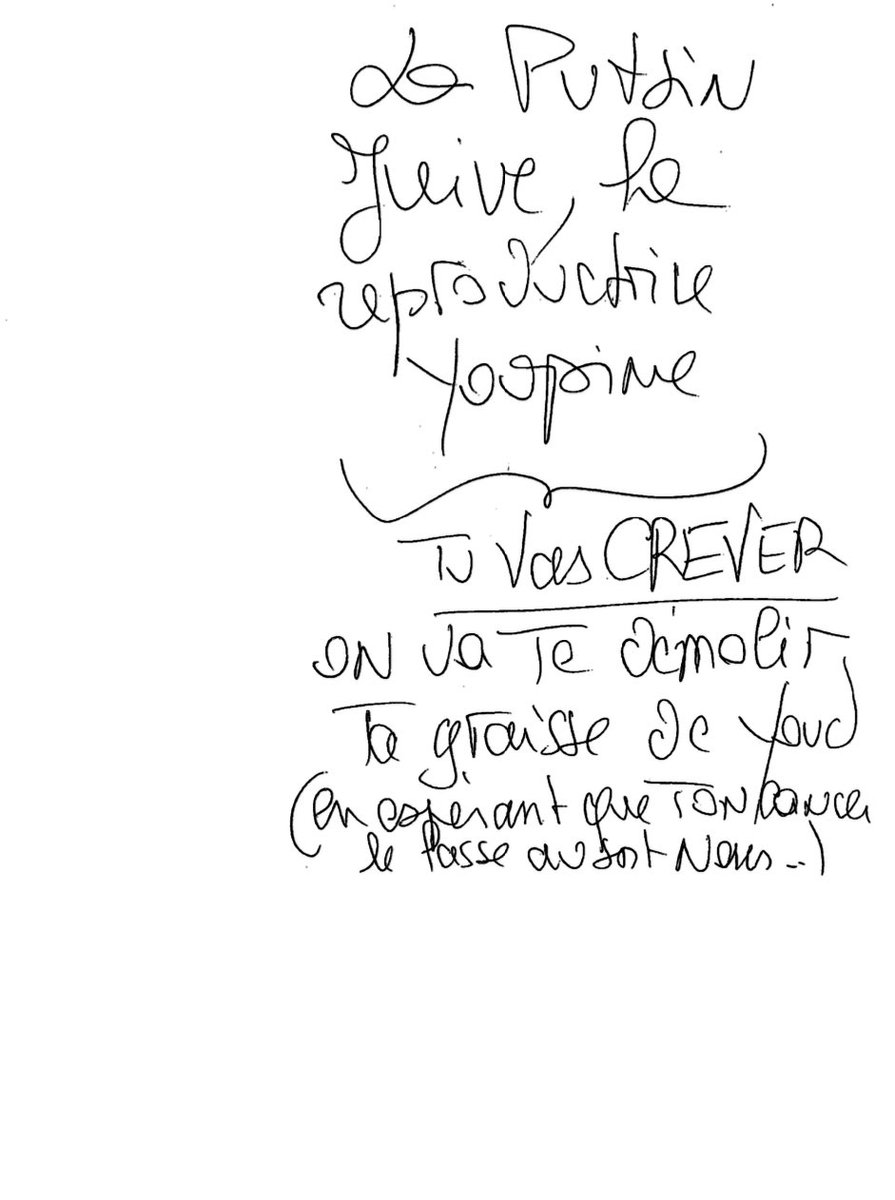 La Putain
Juive, la
reproductrice
Youpine
Tu vas CREVER
ON va Te démolir,
Ta graisse de youd
(en espérant que TON cancer
le fasse avant Nous..)